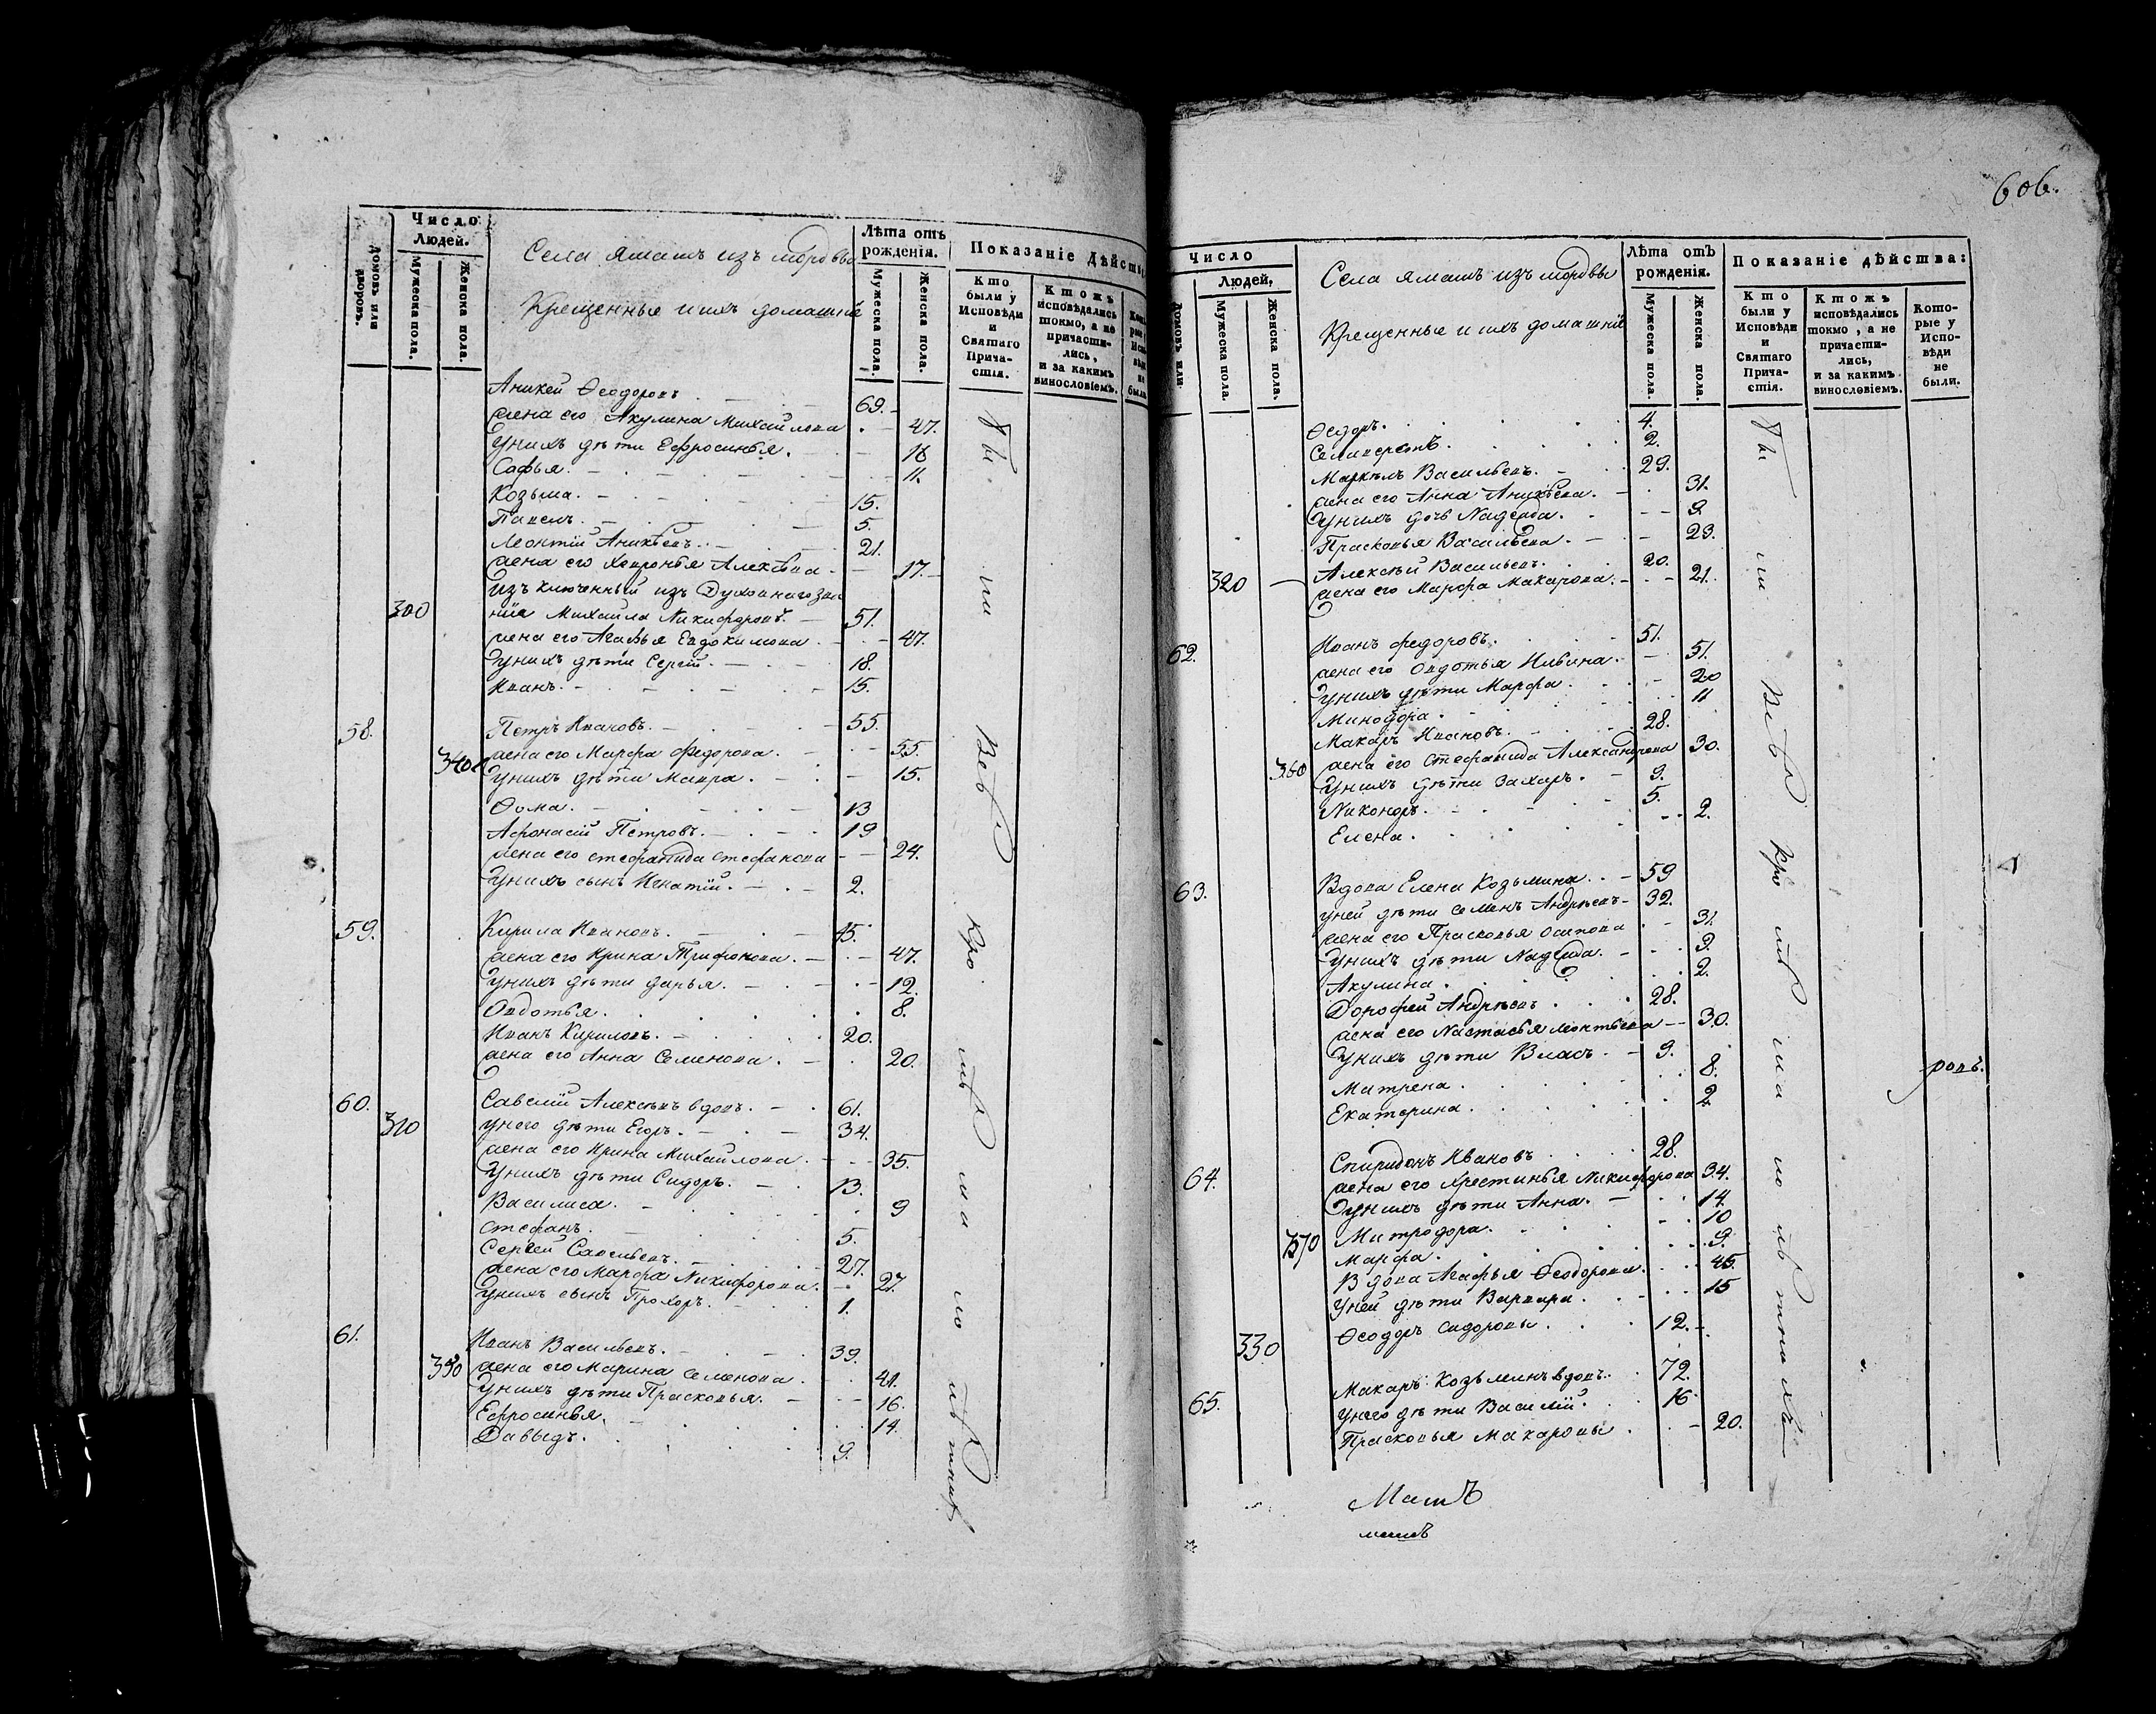 Число
Людей.
Домовъ или дворовъ.
Мужеска пола.
Женска пола.
Села Ямашъ изъ мордвы
Крещенные и ихъ домашнiе
Лѣта отъ
рожденія.
Мужеска пола.
Женска пола.
Показаніе Дѣйства
Кто были у Исповѣди и Святаго Причастія.
Ктожъ исповѣдались токмо, а не причастились, и за какимъ винословіемъ.
Аникей Ѳеодоровъ 69.
жена его Акулина Михайлова 47.
Унихъ дѣти Ефросинья. 18
Софья. 11.
Козьма. 15.
Павелъ. 5.
Леонтiй Аникѣевъ. 21.
жена его Хевронья Алексѣева 17.
изключенный изъ Духовнаго зва
300 нiя Михаила Никифоровъ. 51.
жена его Агафья Евдокимова 47.
Унихъ дѣти Сергiй. 18.
Иванъ. 15.
58. Петръ Ивановъ. 55.
340 жена его Марфа Федорова. 55.
Унихъ дѣти Мавра. 15.
Ѳома. 13
Афонасiй Петровъ. 19
жена его Стефанида Стефанова 24.
Унихъ сынъ Игнатiй. 2.
59. Кирила Ивановъ. 45.
жена его Ирина Трифонова. 47.
Унихъ дѣти Дарья. 12.
Овдотья. 8.
Иванъ Кириловъ. 20.
жена его Анна Семенова. 20.
60. Савелiй Алексѣевъ вдовъ. 61.
310 унего дѣти Егоръ. 34.
жена его Ирина Михайлова. 35.
Унихъ дѣти Сидоръ. 13.
Василиса. 9
Стефанъ. 5.
Сергей Савельевъ. 27.
жена его Марфа Никифорова. 27.
Унихъ сынъ Прохоръ. 1.
61. Иванъ Васильевъ. 39.
350 жена его Марина Семенова. 41.
Унихъ дѣти Прасковья. 16.
Ефросинья. 14.
Давыдъ. 9.
606.
Число
Людей,
Домовъ или
Мужеска пола.
Женска пола.
Села Ямашъ изъ мордвы
Крещенные и ихъ домашнiе
Лѣта отъ
рожденія.
Мужеска пола.
Женска пола.
Показаніе дѣйства:
Кто были у Исповѣди и Святаго Причастія.
Ктожъ исповѣдались токмо, а не причастились, и за какимъ винословіемъ.
Которые у Исповѣди не были.
Ѳедоръ. 4.
Селиверстъ. 2.
Маркѣлъ Васильевъ. 29.
жена его Анна Аникѣева. 31.
Унихъ дочь Надежда. 9
Прасковья Васильева. 23.
320 Алексѣй Васильевъ. 20.
жена его Марфа Макарова. 21.
62. Иванъ Федоровъ. 51.
жена его Овдотья Ильина. 51.
Унихъ дѣти Марфа. 20
Минодора. 11
Макаръ Ивановъ. 28.
360 жена его Стефанида Александрова 30.
Унихъ дѣти Захаръ. 9.
Никоноръ. 5.
Елена. 2.
63. Вдова Елена Козьмина. 59
уней дѣти Семенъ Андрѣевъ 32.
жена его Прасковья Осипова 31.
Унихъ дѣти Надежда. 9.
Акулина. 2.
Дорофей Андрѣевъ. 28.
жена его Настасья Леонтьева 30.
Унихъ дѣти Власъ. 9.
Матрена. 8.
Екатерина. 2
64. Спиридонъ Ивановъ 28.
жена его Хрестинья Никифорова 34.
Унихъ дѣти Анна. 14.
Митродора. 10
370 Марфа. 9.
Вдова Агафья Ѳеодорова. 45.
Уней дѣти Варвара. 15
330 Ѳеодоръ Сидоровы. 12.
65. Макаръ Козьминъ вдовъ. 72.
унего дѣти Василiй. 16
Прасковья Макаровы. 20.